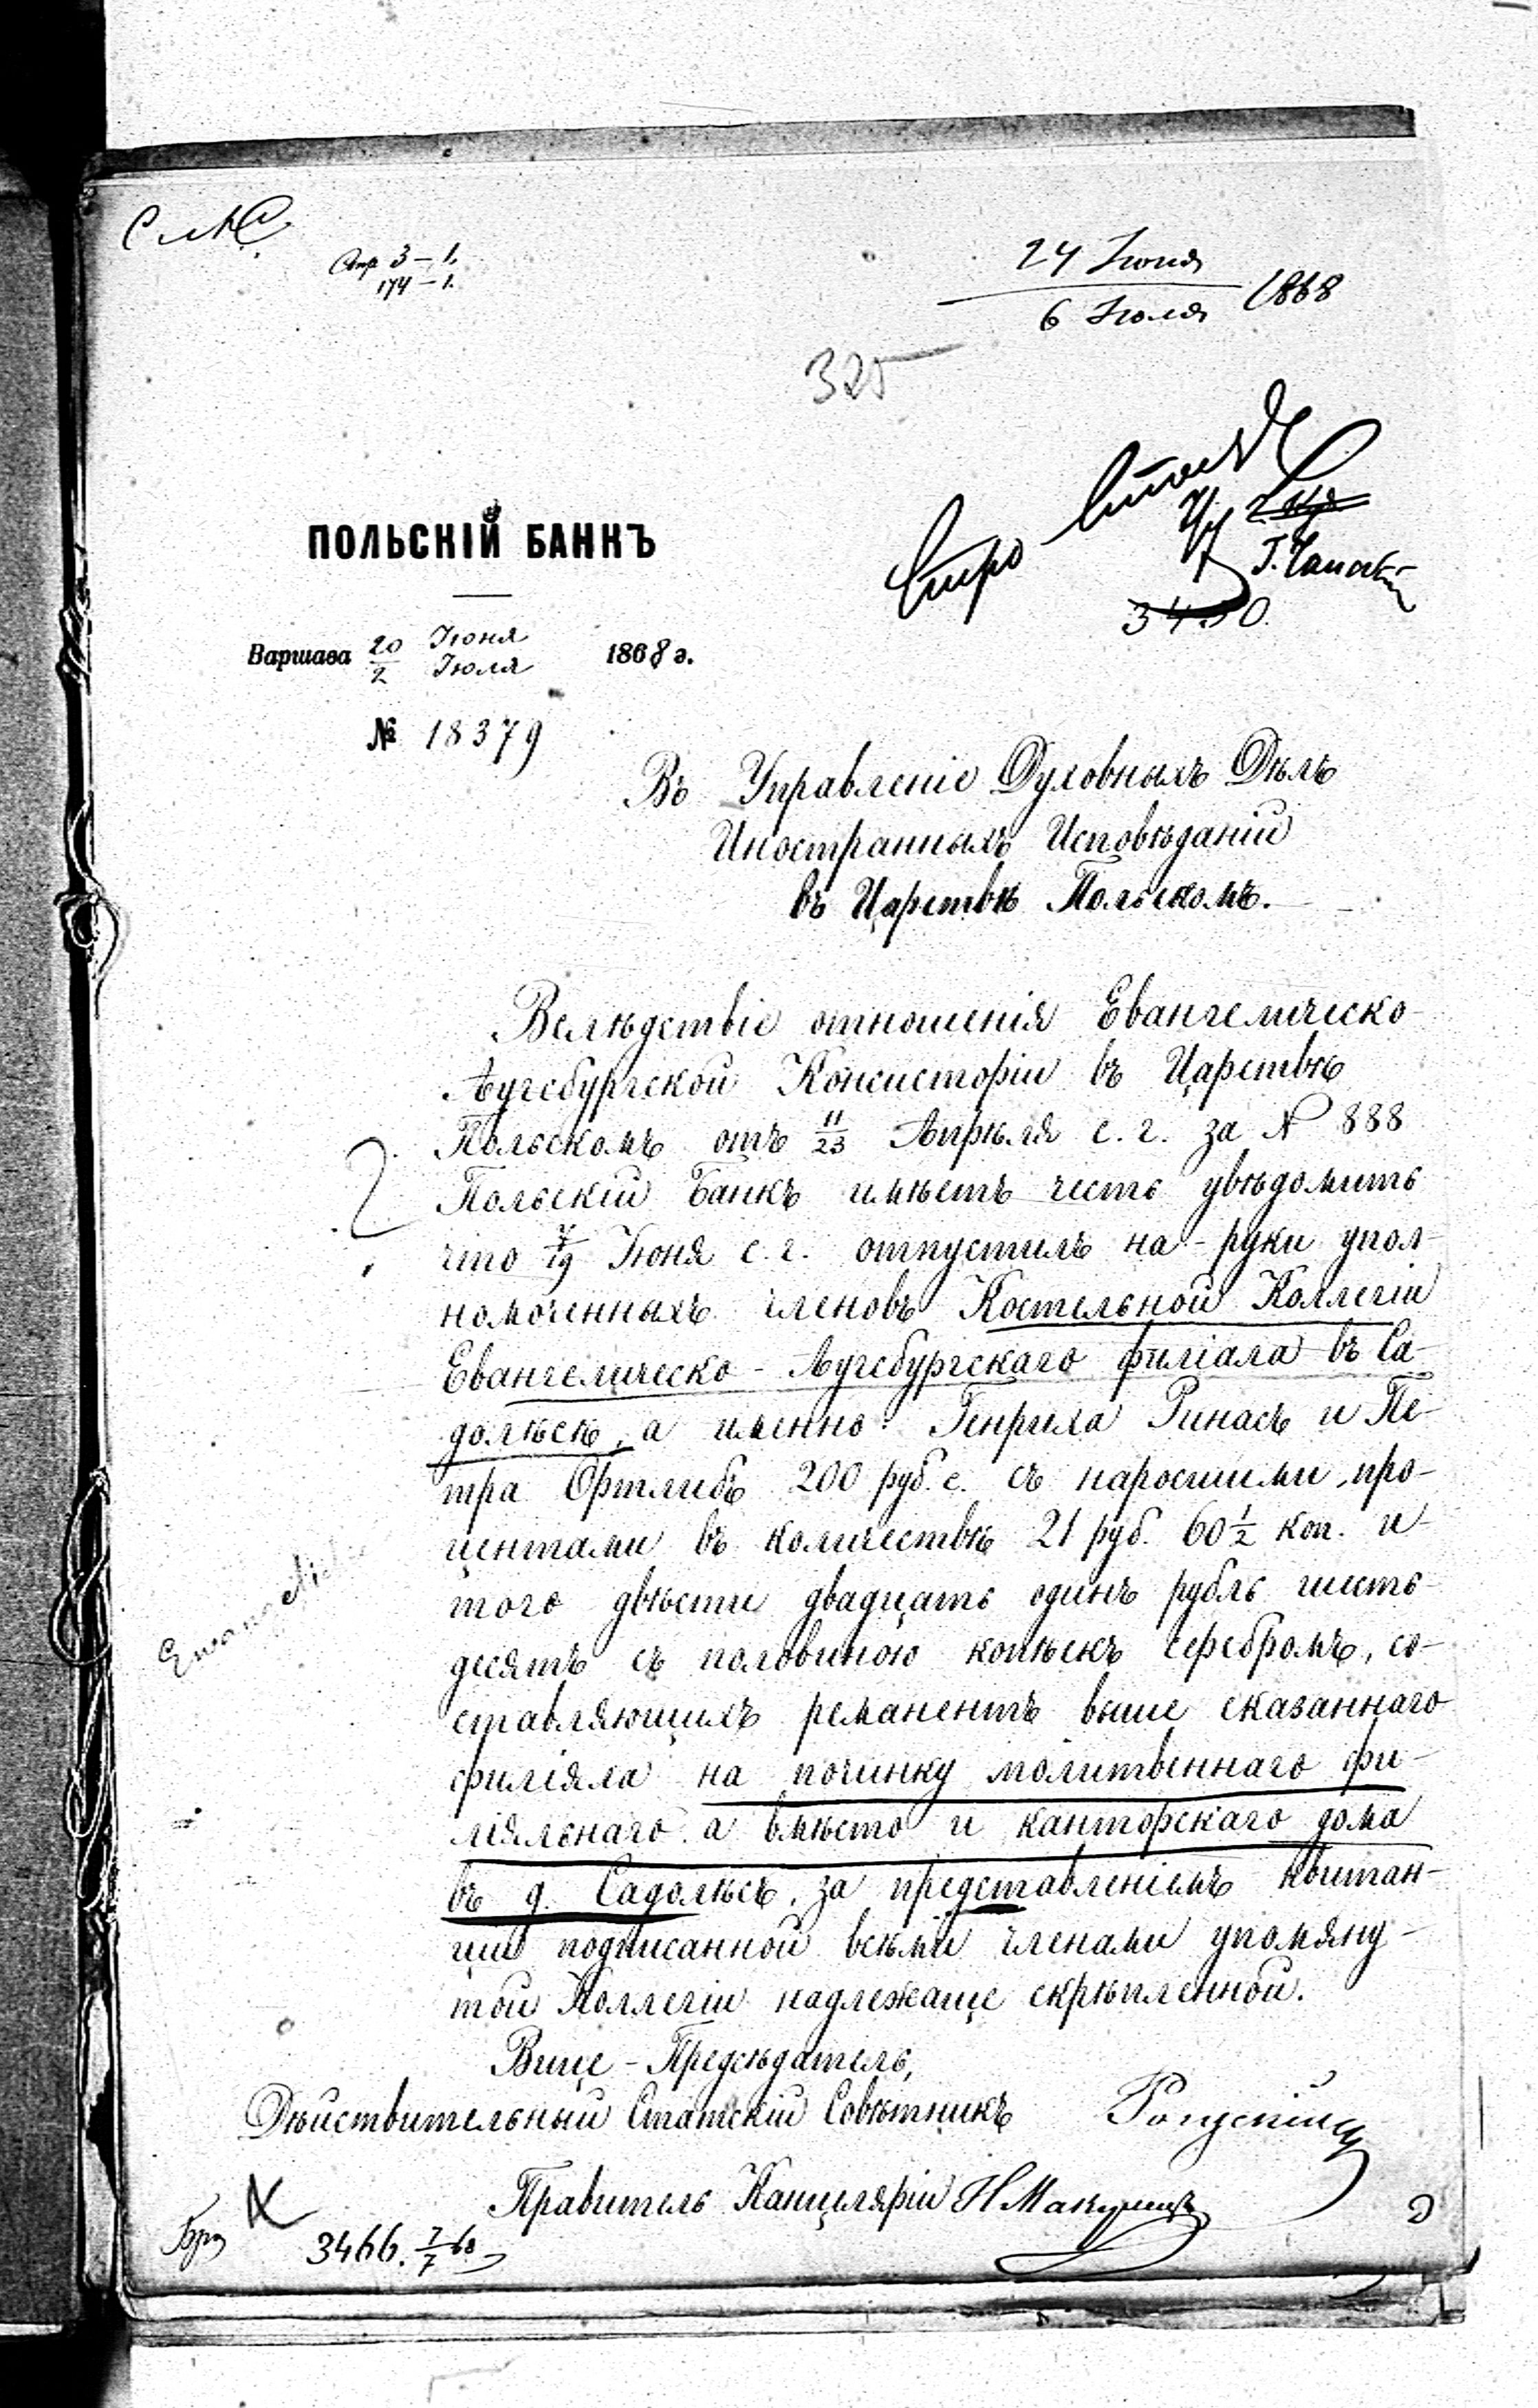 Стр 3 – 1.
174 – 1.
24 Іюня
6 Іюля 1868
325
ПОЛЬСКІЙ БАНКЪ
Варшава 20/2 Іюня Іюля 1868 г.
№ 18379
3430.
Въ Управленіе Духовныхъ Дѣлъ
Иностранныхъ Исповѣданій
въ Царствѣ Польскомъ.
Вслѣдствіе отношенія Евангелическо-
Аугсбургской Консисторіи въ Царствѣ
Польскомъ отъ 11/23 Апрѣля с. г. за № 888
Польскій Банкъ имѣетъ честь увѣдомить
что 7/19 Іюня с. г. отпустилъ на-руки упол-
номоченныхъ членовъ Костельной Коллегіи
Евангелическо-Аугсбургскаго филіала въ Са-
долѣсѣ, а именно: Генриха Ринасъ и Пе-
тра Ортлибъ 200 руб. с. съ наросшими про-
центами въ количествѣ 21 руб. 60 1/2 коп. и-
того двѣсти двадцать одинъ рубль шесть-
десятъ съ половиною копѣекъ серебромъ, со-
ставляющихъ реманентъ выше сказаннаго
филіяла на починку молитвеннаго фи-
ліяльнаго а вмѣсто и канторскаго дома
въ д. Садолѣсѣ, за представленіемъ квитан-
ціи подписанной всѣми членами упомяну-
той Коллегіи надлежаще скрѣпленной.
Вице-Предсѣдатель,
Дѣйствительный Статскій Совѣтникъ
Правитель Канцеляріи
3466. 7/7 68